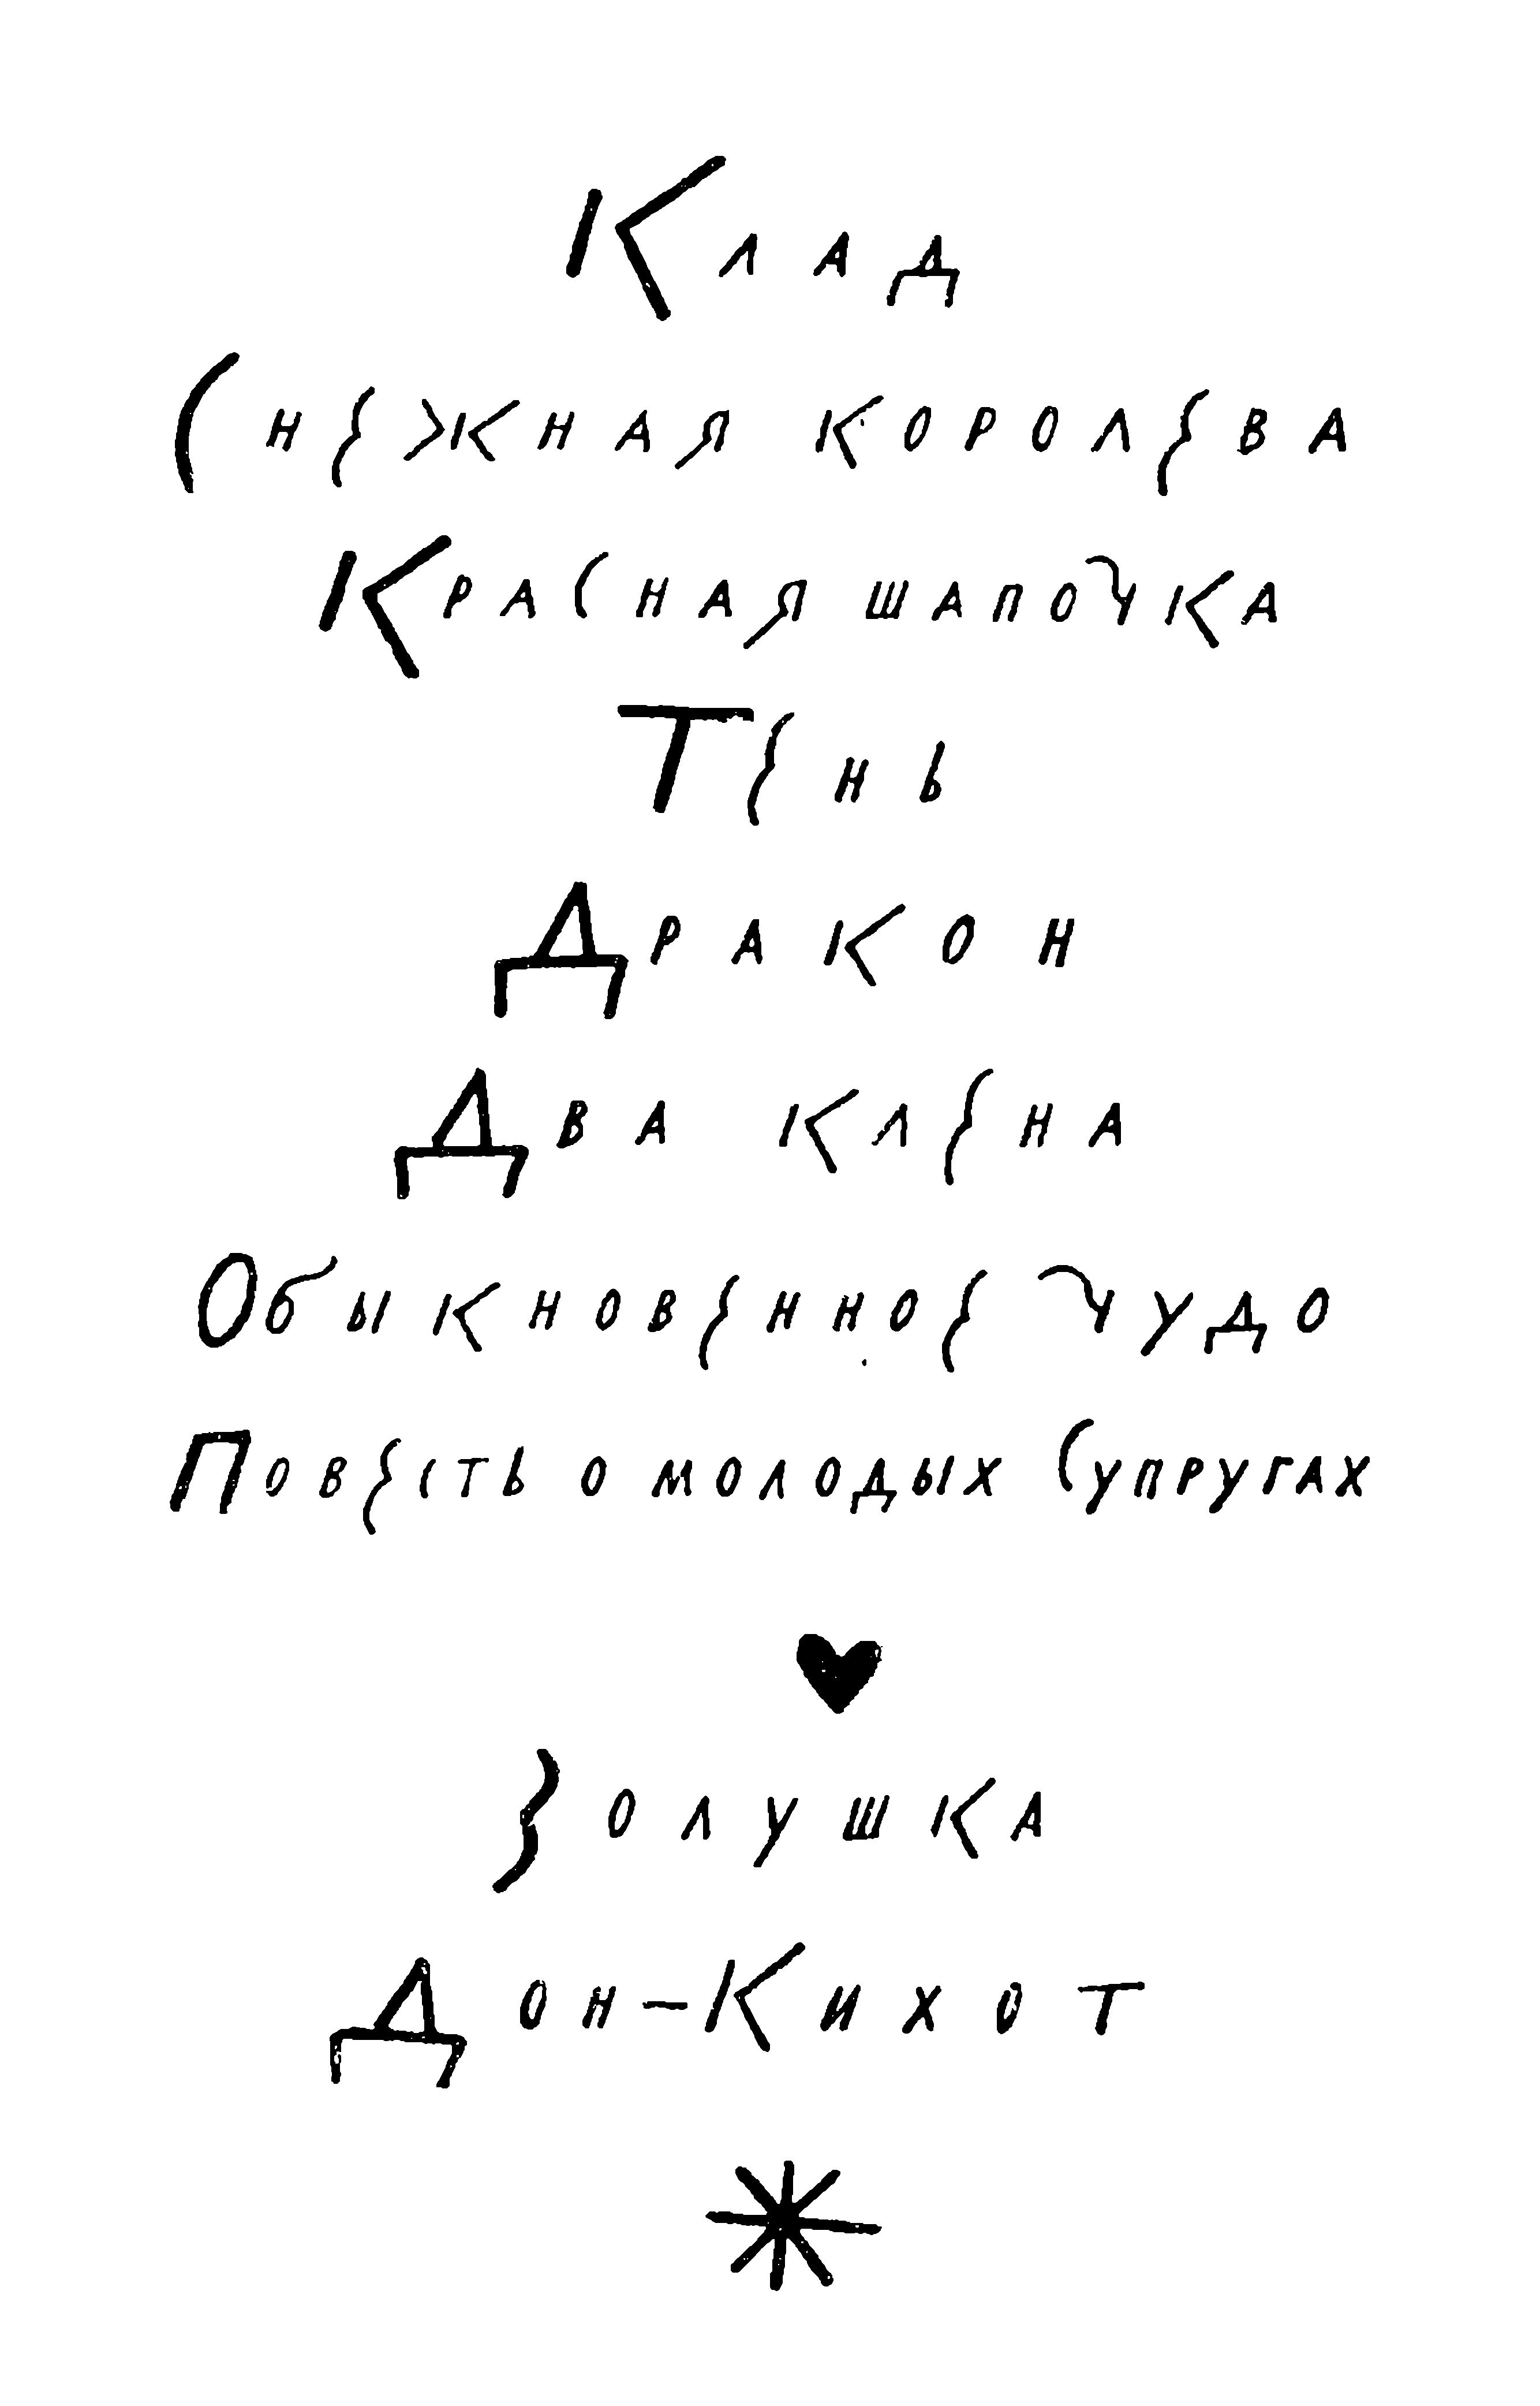 Клад
Снежная королева
Красная шапочка
Тень
Дракон
Два клена
Обыкновенное чудо
Повесть о молодых супругах
Золушка
Дон-Кихот